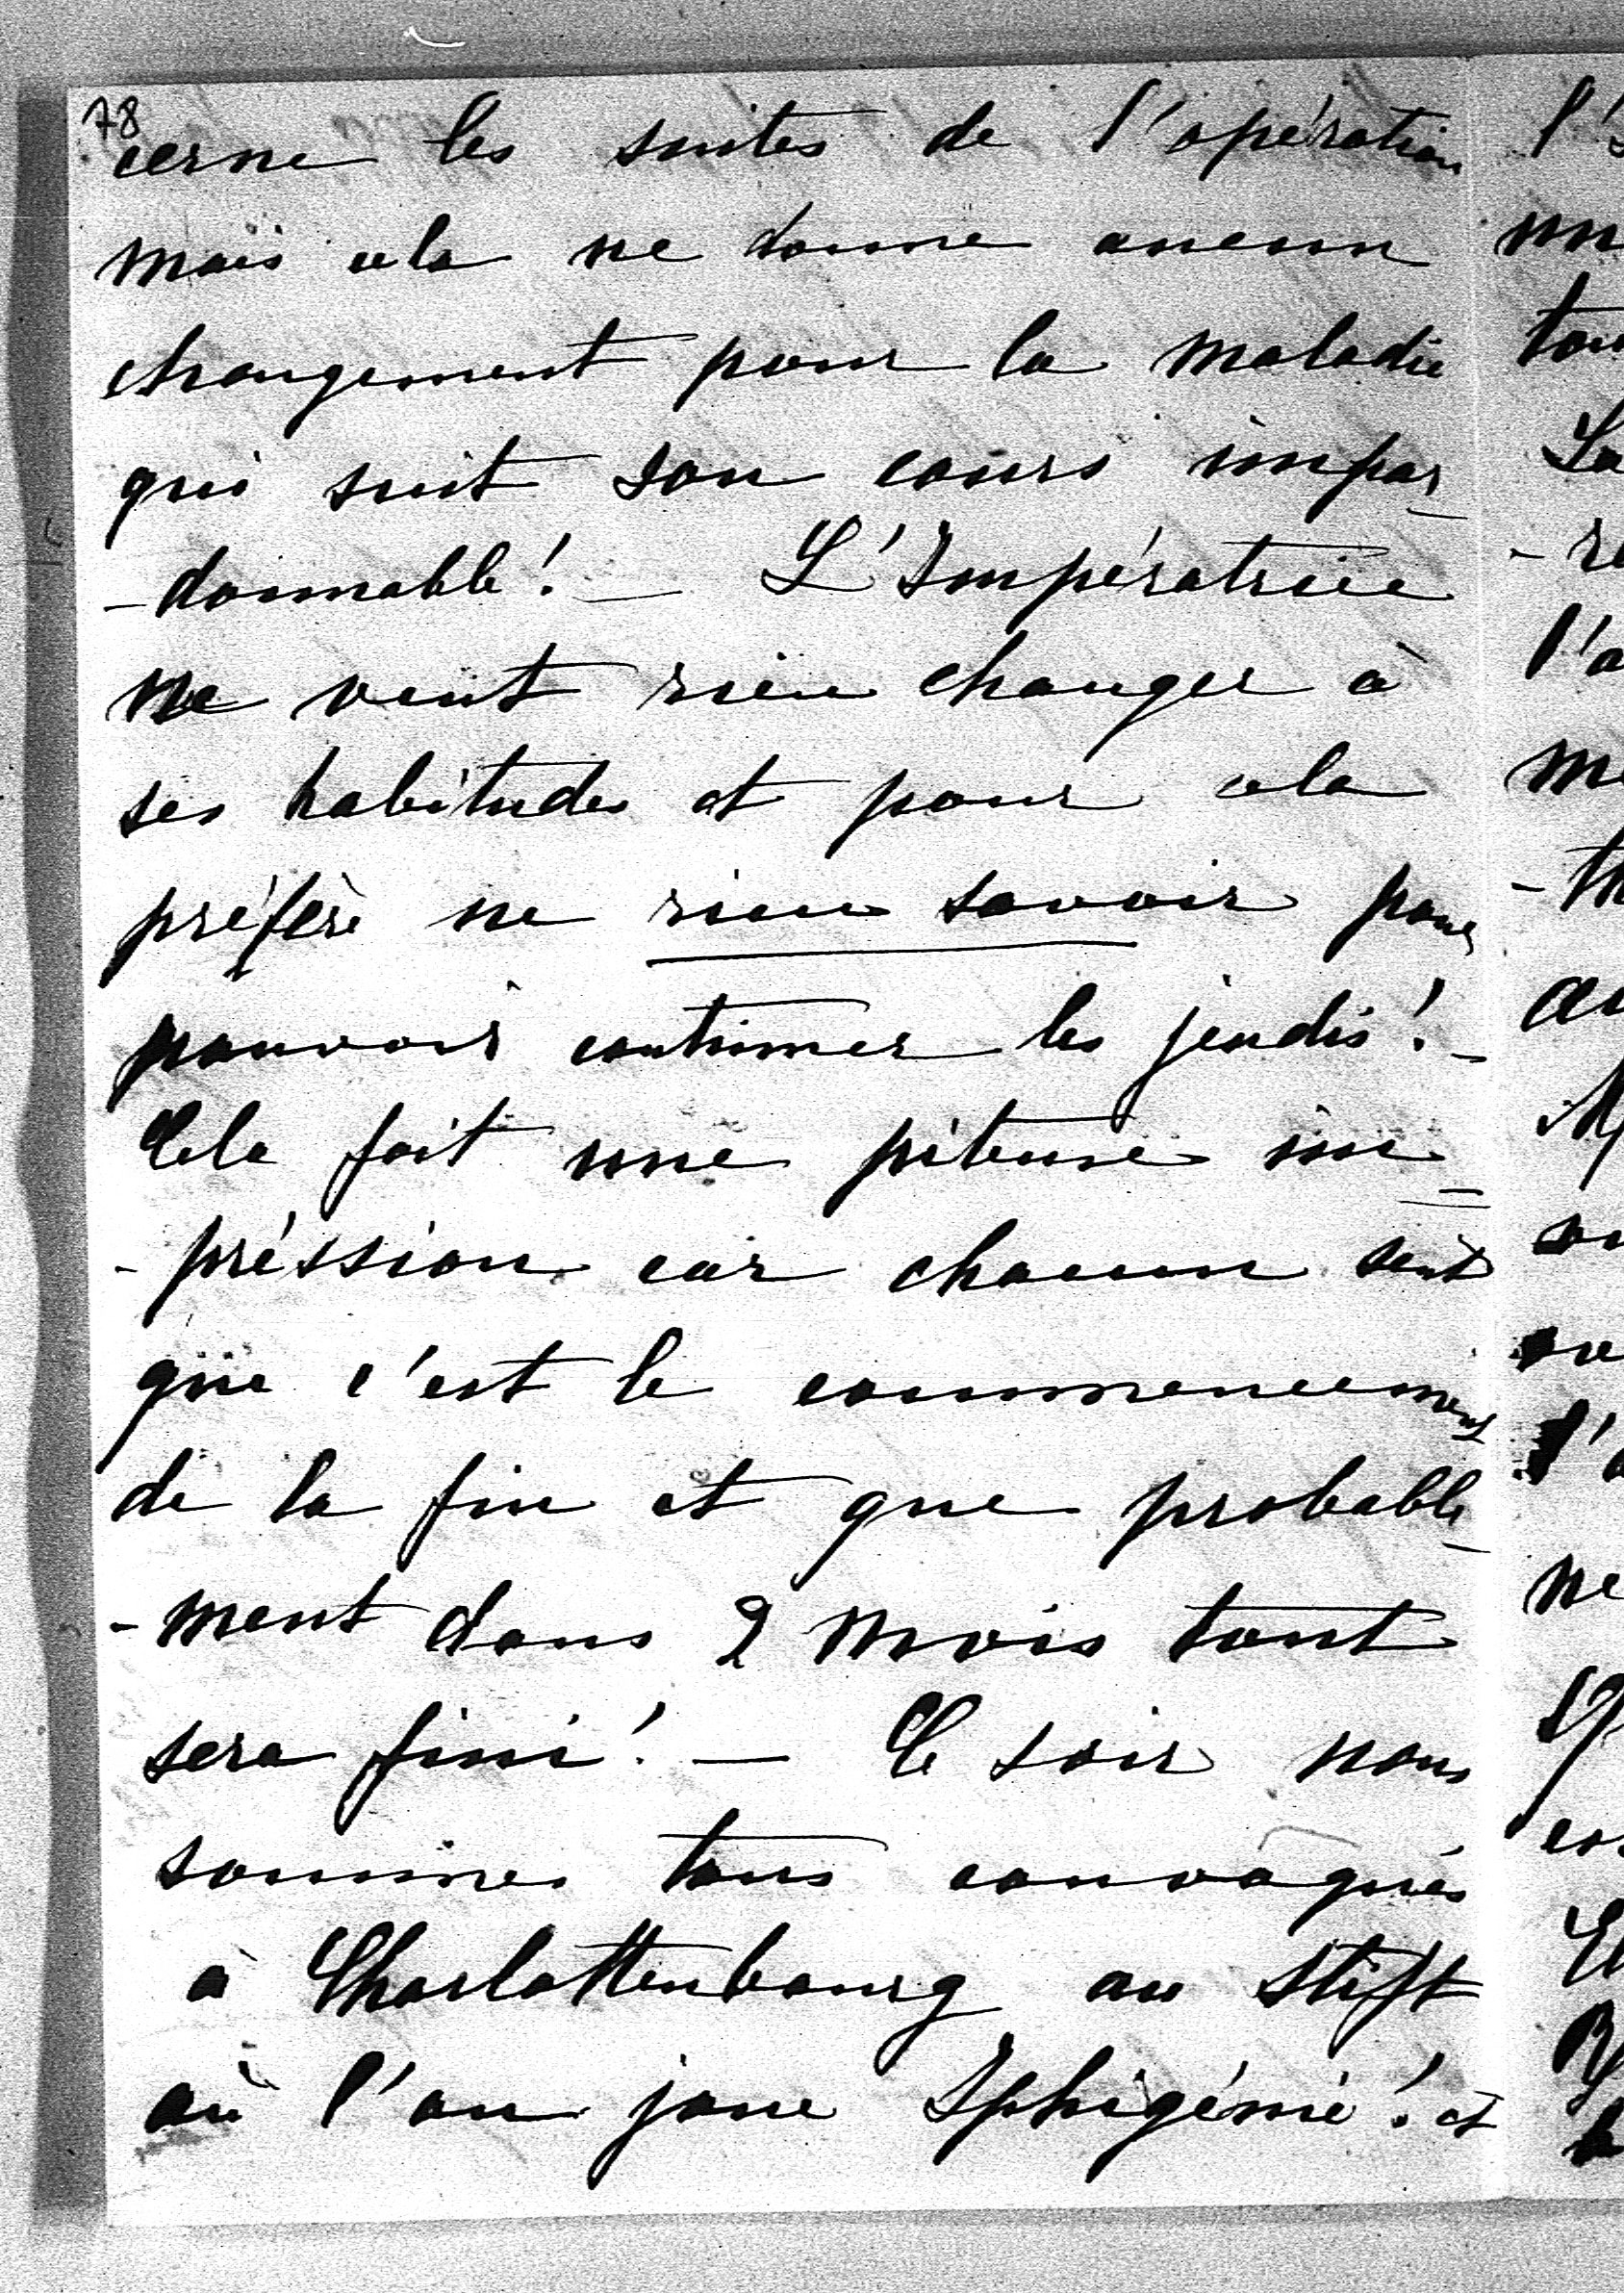 78
cerne les suites de l'opération
mais cela ne donne aucun
changement pour la maladie
qui suit son cours impar_
-donnable! _ L'Impératrice
ne veut rien changer à
ses habitudes et pour cela
préfère ne rien savoir pour
pouvoir continuer les jeudis! _
Cela fait une piteuse im=
-préssion car chacun sent
que c'est le commencement
de la fin et que probable_
-ment dans 2 mois tout
sera fini! — Ce soir nous
sommes tous convoqués
à Charlottenbourg au Stift
où l'on joue Iphigénie! et